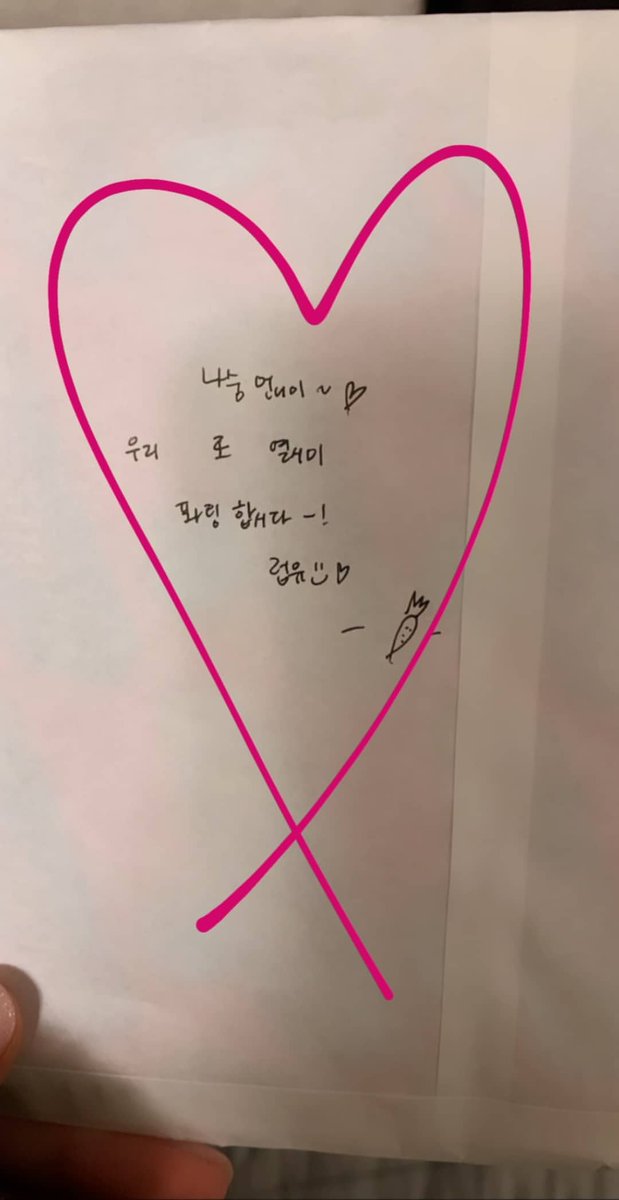 나숭 언니이 ~ ♡
우리 또 열시미
퐈팅 합시다 -!
럽유 :) ♡